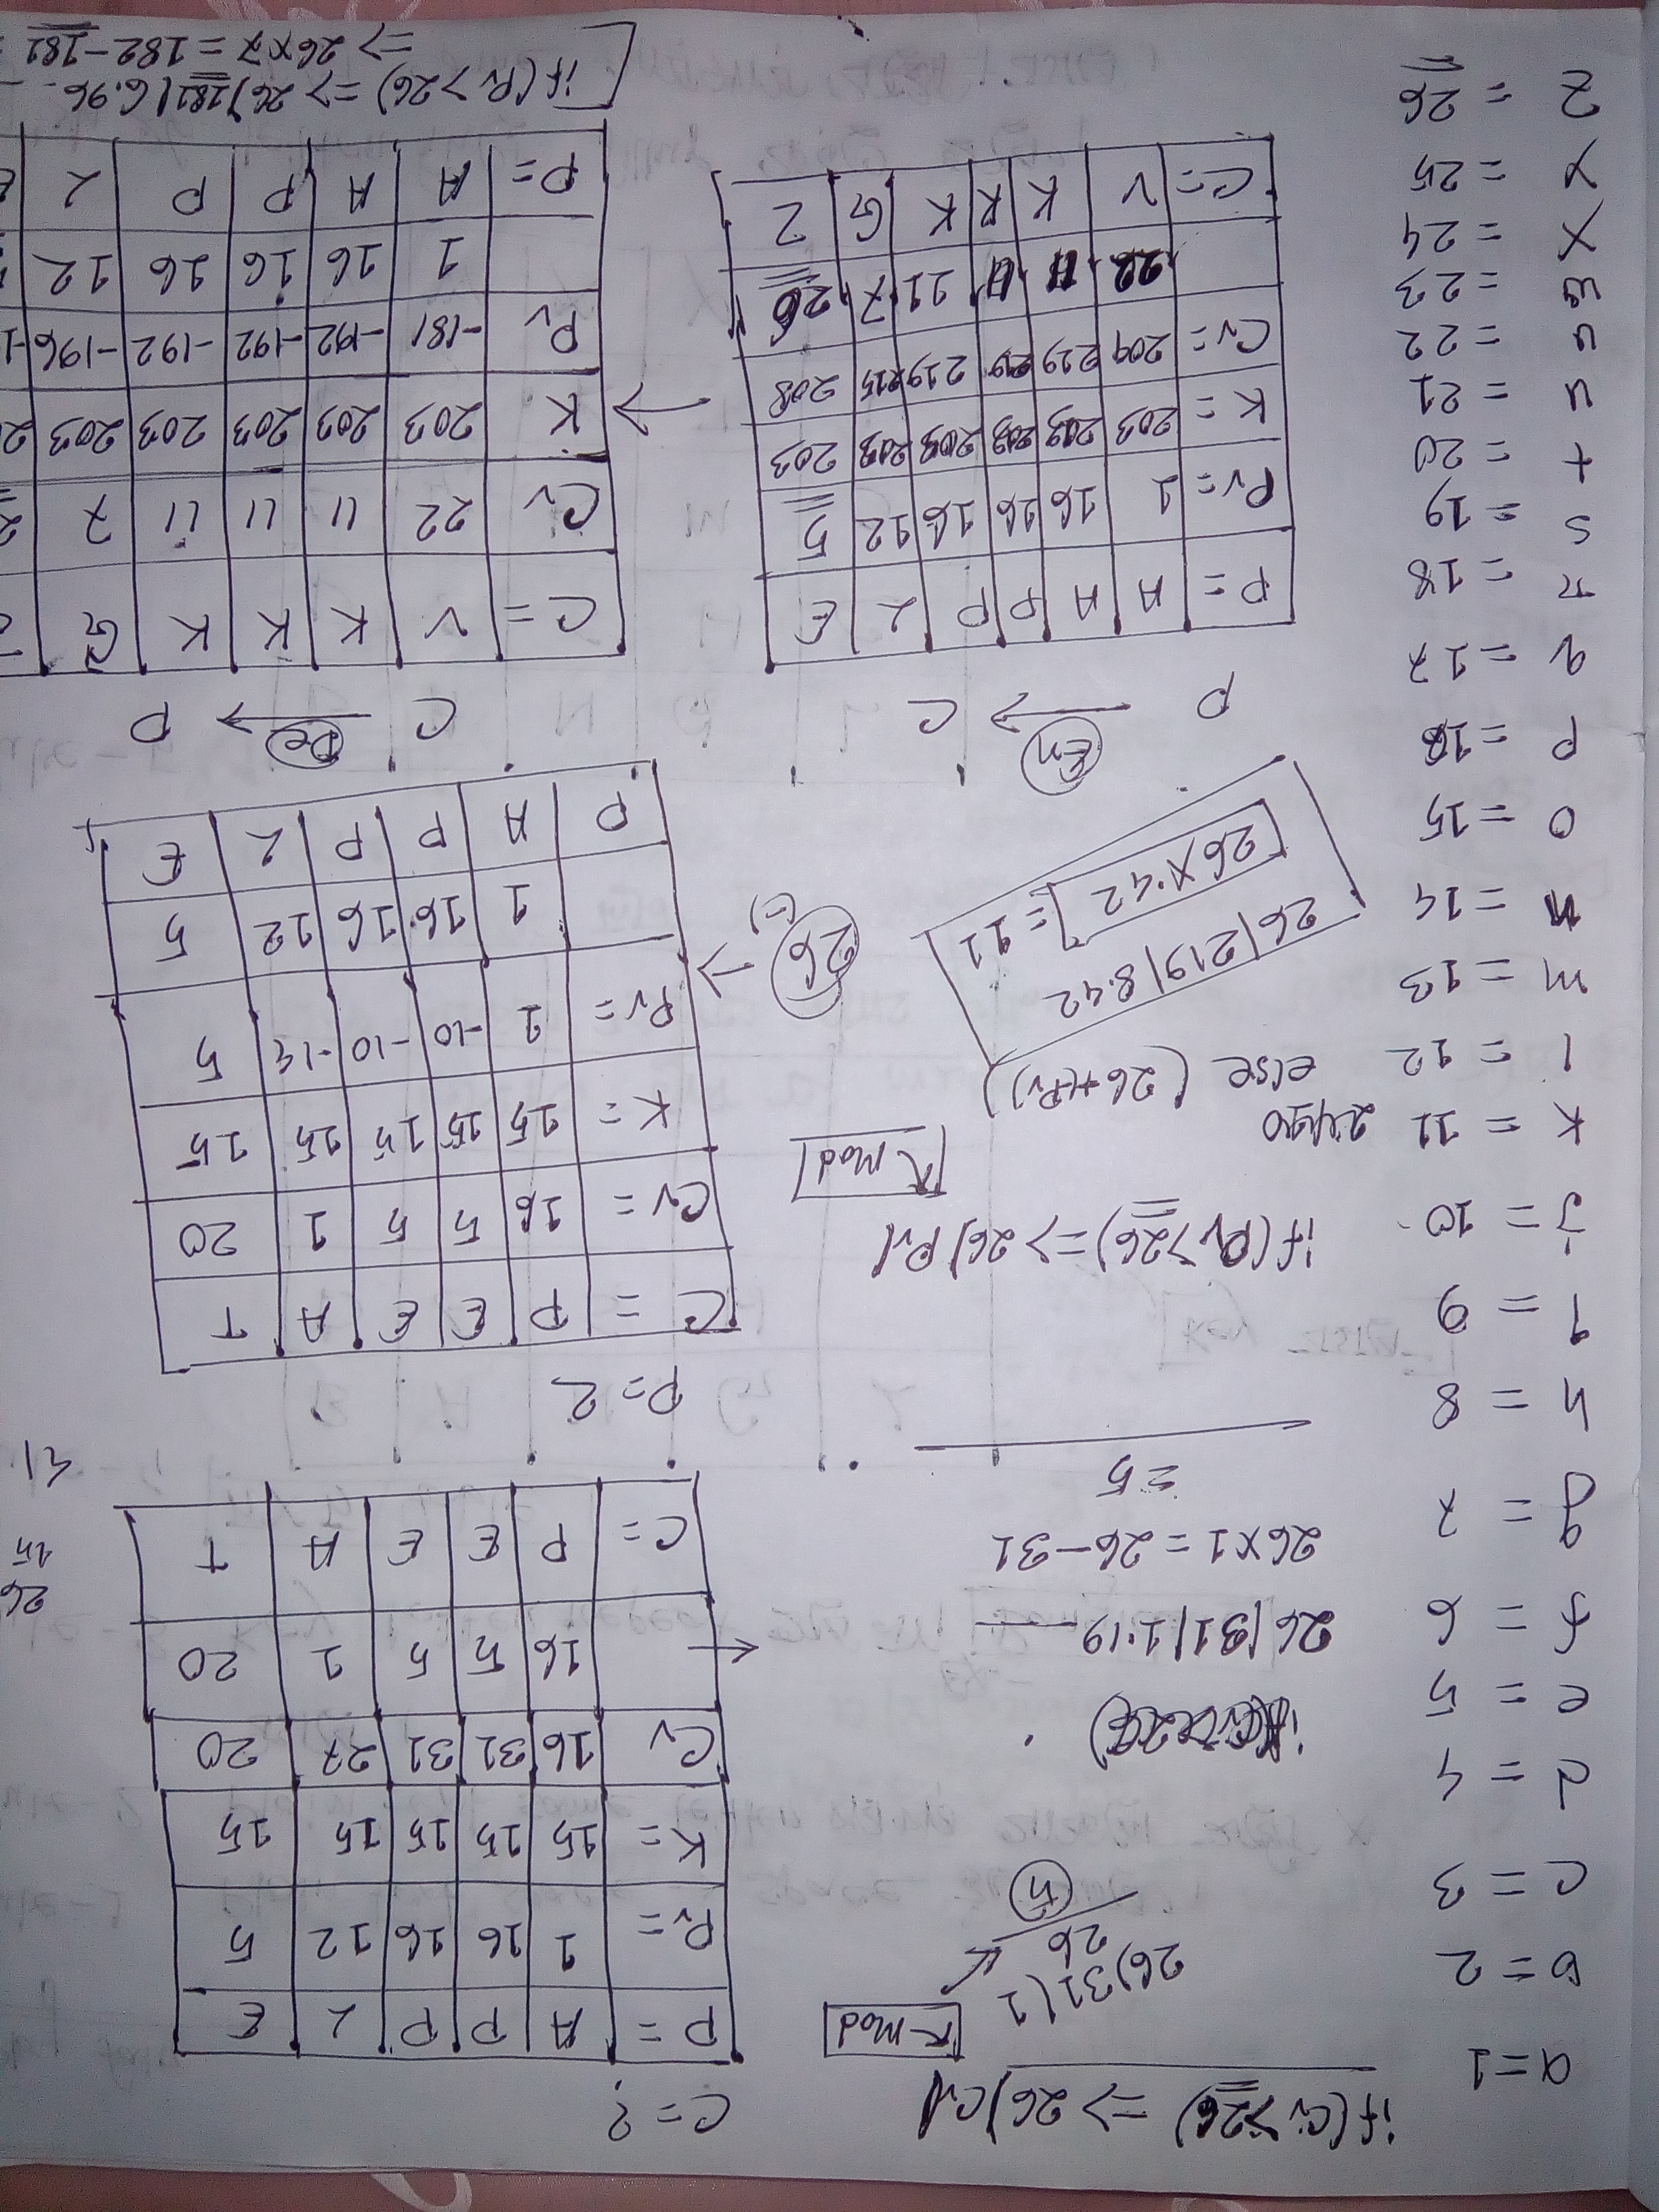 if(Cv>26) => 26)Cv(
↖ Mod
26)31(1
26
5
a=1
b=2
c=3
d=4
e=5
f=6
g=7
h=8
i=9
j=10
k=11
l=12
m=13
n=14
o=15
p=16
q=17
r=18
s=19
t=20
u=21
v=22
w=23
x=24
y=25
z=26
26/31/1.19
26×1=26-31
=5
if(Pv>26)=>26)Pv(
↖ Mod
else (26+(-Pv))
26/219/8.42
26×.42 =11
C=?
P= A P P L E
Pv= 1 16 16 12 5
K= 15 15 15 15 15
Cv 16 31 31 27 20
← 16 5 5 1 20
C= P E E A T
26
15
41
P=?
C= P E E A T
Cv= 16 5 5 1 20
K= 15 15 15 15 15
Pv= 1 -10 -10 -14 5
26 →
(-)
1 16 16 12 5
P A P P L E
P En → C
P= A A P P L E
Pv= 1 16 16 16 12 5
K= 203 203 203 203 203 203
Cv= 204 219 219 219 215 208
22 11 11 11 7 26
C= V K K K G Z
→
C De → P
C= V K K K G
Cv 22 11 11 11 7
K 203 203 203 203 203
Pv -181 -192 -192 -192 -196
1 16 16 16 12
P= A A P P L
if(Pv>26) => 26)181(6.96
=> 26×7=182-181